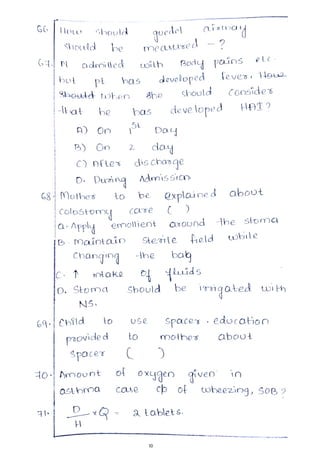 66. How should guedel airway
should be measured - ?
67. Pt admitted with Body pains etc.
but pt has developed fever. How
should when she should Consider
that he has developed HAI?
A) On 1st Day
B) On 2 day
C) After discharge
D. During Admission
68. Mother to be explained about
Colostomy care ( )
a. Apply emollient around the stoma
B. maintain Sterile field while
Changing the bag
C. ↑ intake of fluids
D. Stoma should be irrigated with
NS.
69. Child to use spacer. education
provided to mother about
Spacer ( )
70. Amount of oxygen given in
asthma case c/o of wheezing, SOB ?
71. D/H × Q = 2 tablets.
10